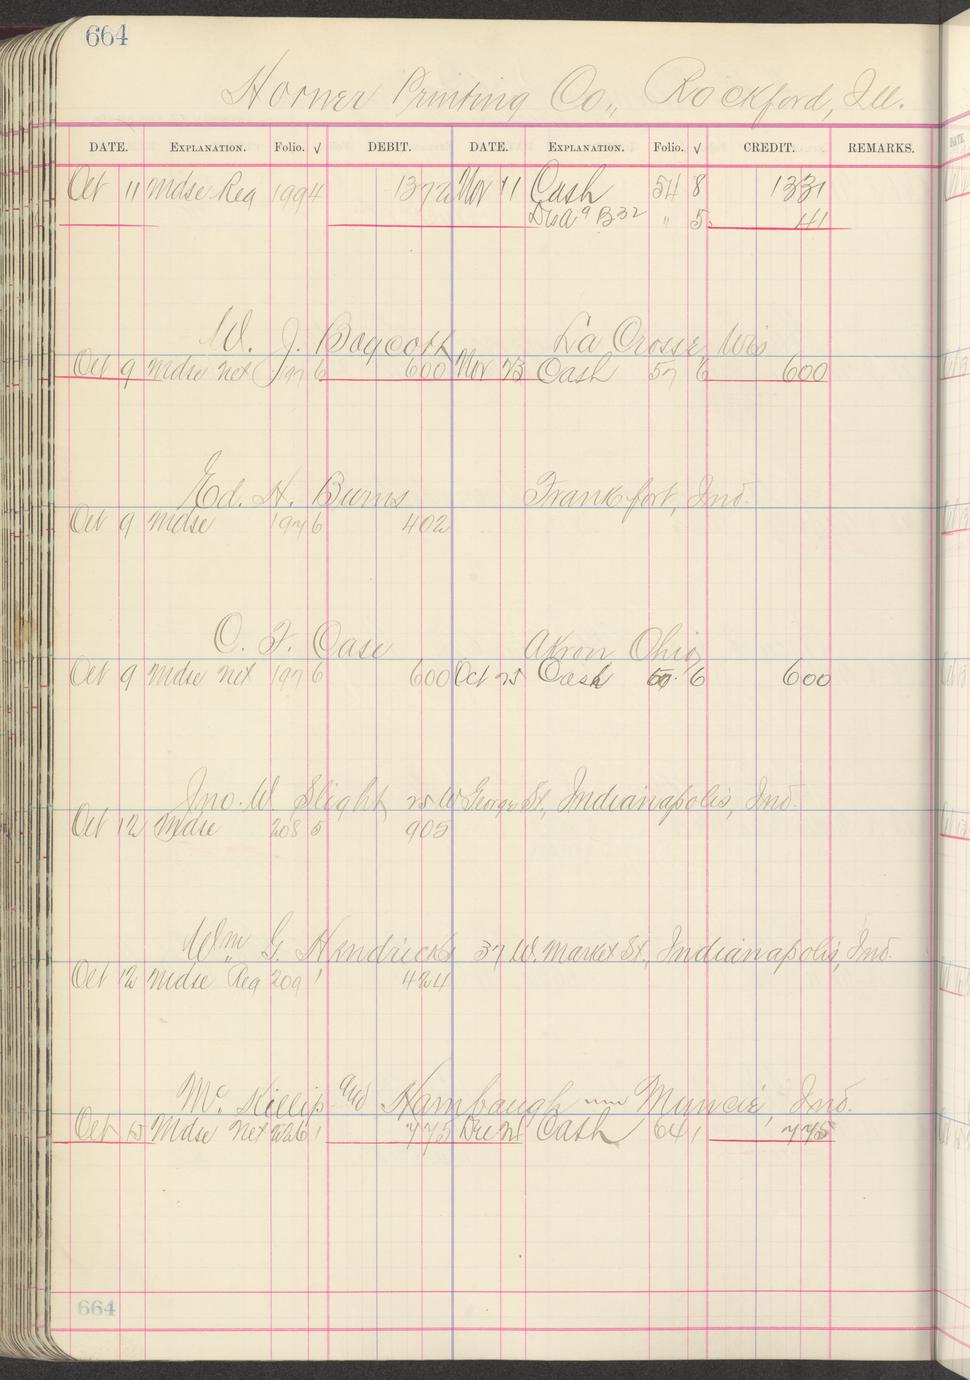 664
Horner Printing Co., Rockford, Ill.
DATE. EXPLANATION. Folio. √ DEBIT. DATE. EXPLANATION. Folio. √ CREDIT. REMARKS.
Oct 11 Mdse Reg 199 4 1372 Nov 11 Cash 54 8 1331
" 5 41
W. J. Boycott La Crosse Wis
Oct 9 Mdse Net 197 6 600 Nov 23 Cash 57 6 600
Ed. H. Burns Frankfort, Ind.
Oct 9 Mdse 197 6 402
O. F. Case Akron Ohio
Oct 9 Mdse Net 197 6 600 Oct 25 Cash 6 600
Jno. W. Slight 25 W George St., Indianapolis, Ind.
Oct 12 Mdse 208 5 905
Wm G. Hendricks 37 W. Market St., Indianapolis, Ind.
Oct 12 Mdse Reg 209 1 424
Mc Killip and Hambaugh Muncie, Ind.
Oct 15 Mdse Net 226 1 775 Dec 21 Cash 64 1 775
664